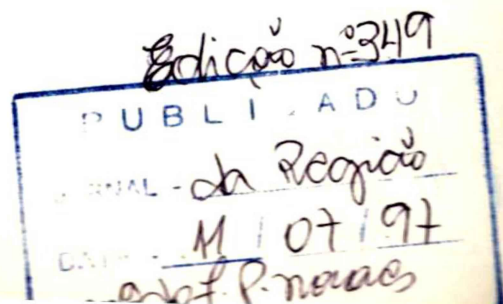 Edição nº 349
PUBLICADO
JORNAL - da Região
DATA - 11 / 07 / 97